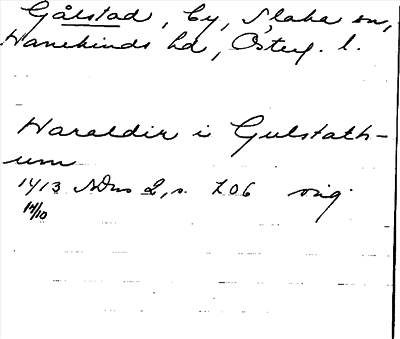 Gålstad, by, Slaka sn,
Hanekinds hd, Österg. l.
Haraldir i Gulstath-
um
1413 SDns 2, s. 206 orig.
14/10